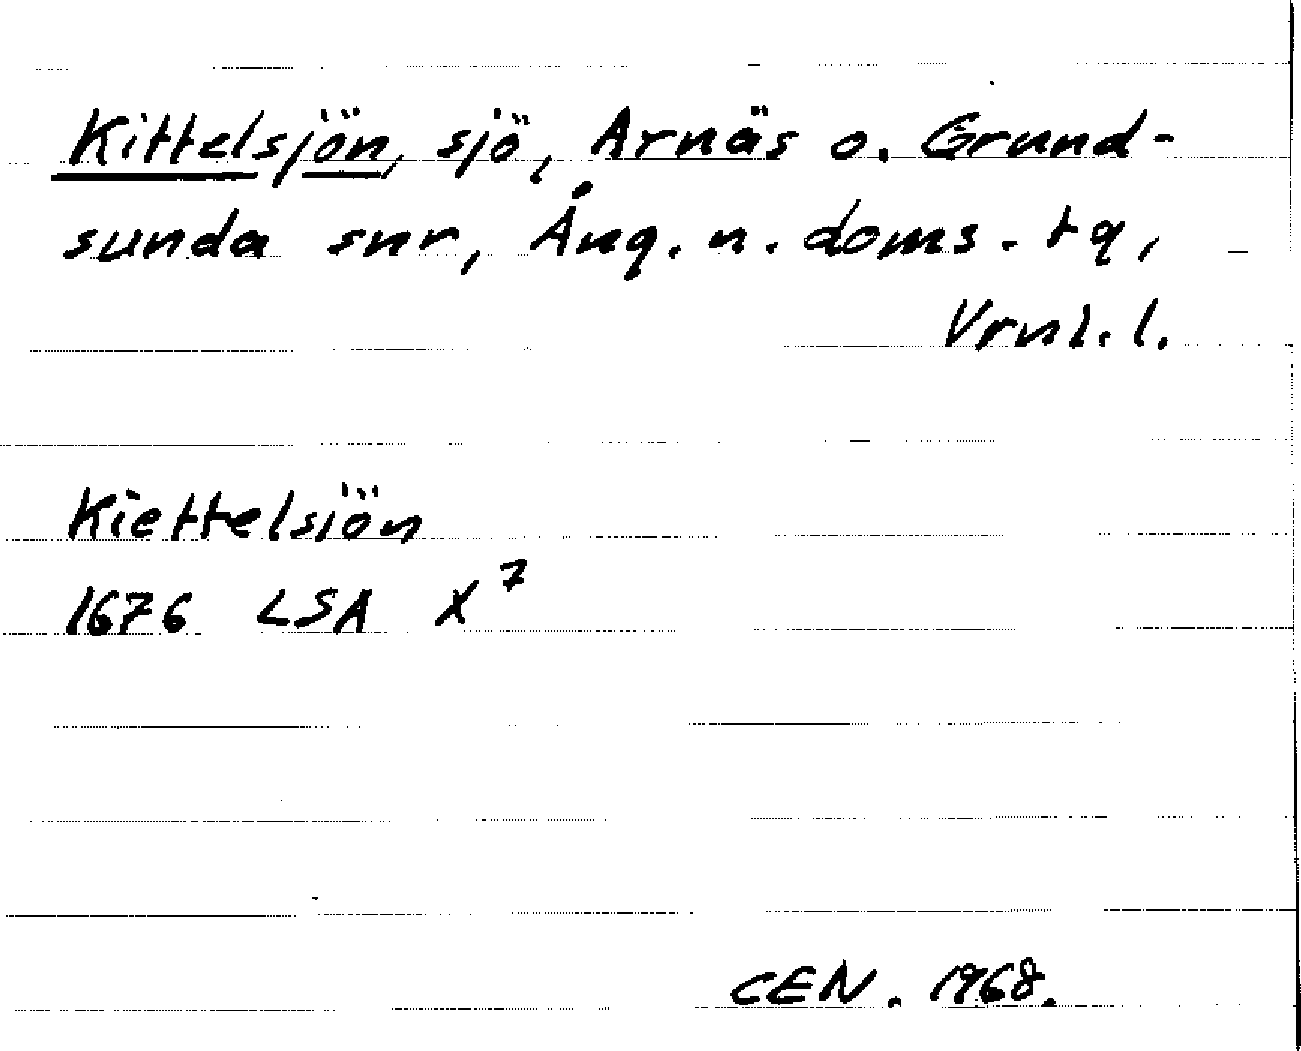 Kittelsjön, sjö, Arnäs o. Grund-
sunda snr, Ång. n. doms. tg,
Vrnl. l.
Kiettelsiön
1676 LSA X⁷
CEN. 1968.